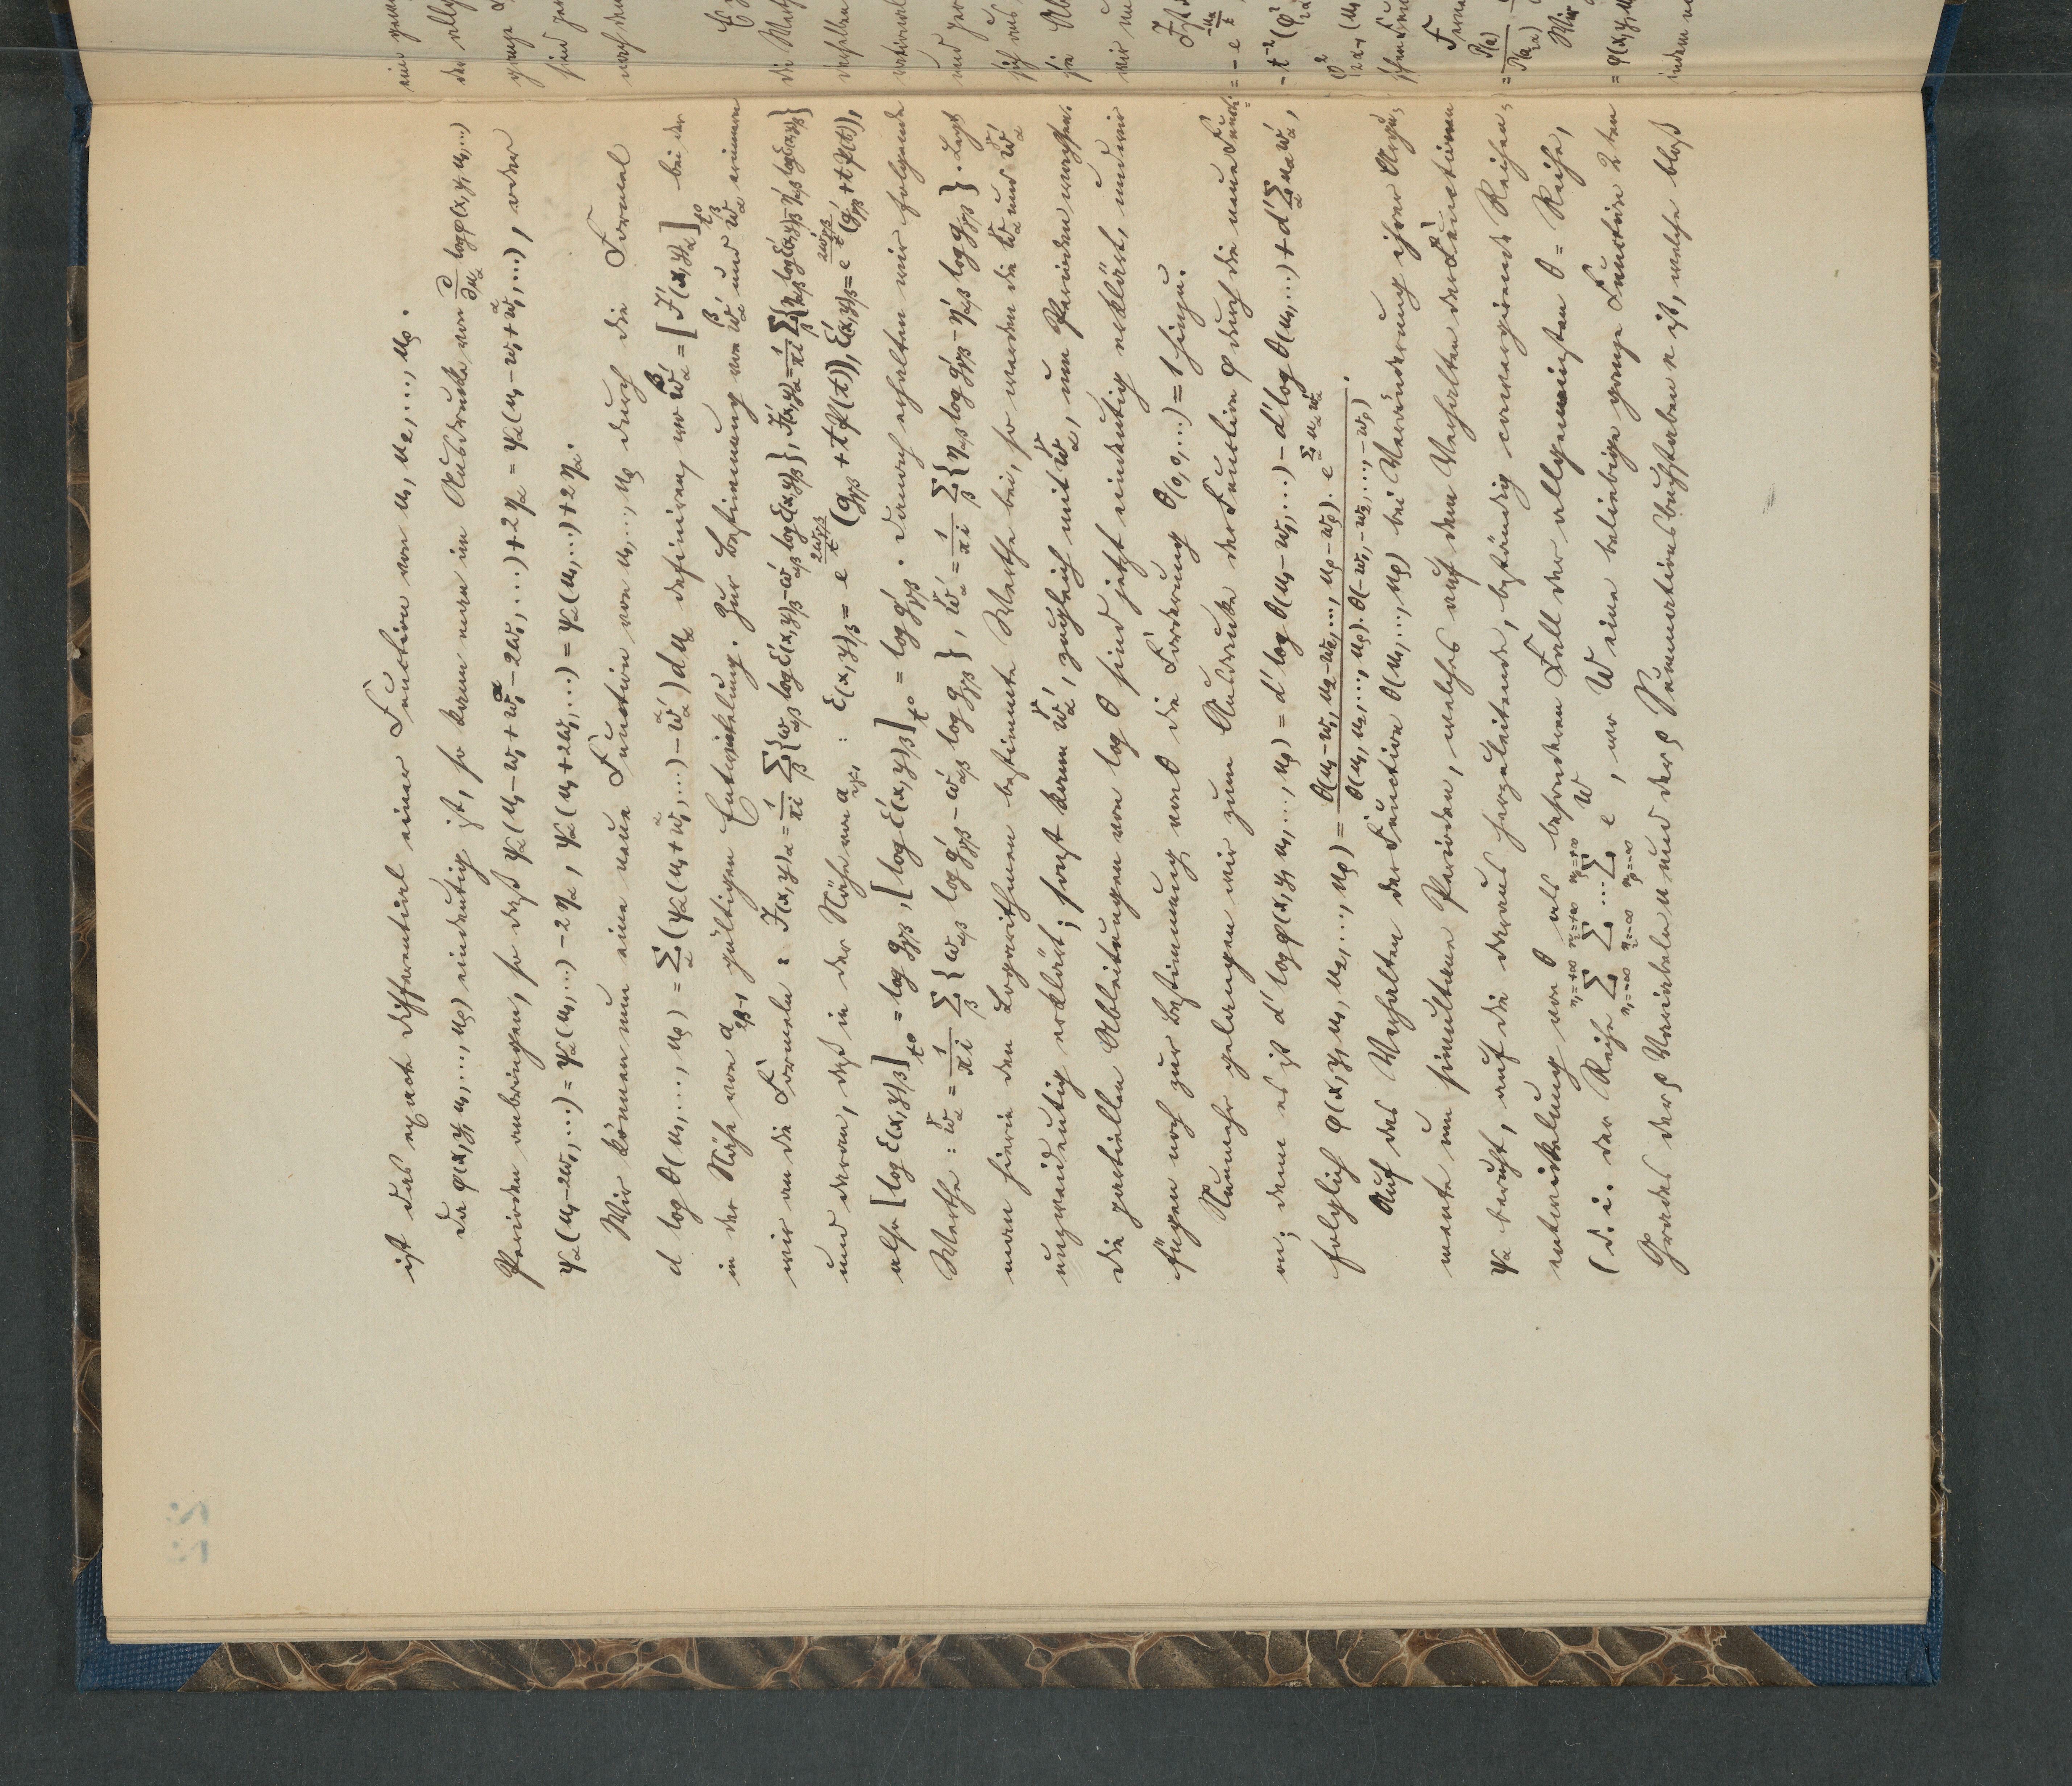 ist das exacte Differential einer Function von u₁, u₂, ..., u_ρ.
Da φ(x,y, u₁, ..., u_ρ) eindeutig ist, so kann man im Ausdrucke von ∂/∂u_α log φ(x,y, u₁, ...)
Perioden anbringen, so daß ψ_α(u₁ − w₁ + w̃₁^α − 2ω₁, ...) + 2η_α = ψ_α(u₁ − w₁ + w̃₁^α, ...), oder
ψ_α(u₁ − 2ω₁, ...) = ψ_α(u₁, ...) − 2η_α, ψ_α(u₁ + 2ω₁, ...) = ψ_α(u₁, ...) + 2η_α.
Wir können nun eine neue Function von u₁, ..., u_ρ durch die Formel
d log θ(u₁, ..., u_ρ) = Σ_α (ψ_α(u₁ + w̃₁^α, ...) − w̃'_α^α) du_α definiren, wo w̃'_α^β = [J'(x,y)_α]_{t^0} bei der
in der Nähe von a gültigen Entwickelung. Zur Bestimmung von w̃'_α^β und w̃_α^β erinnern
wir an die Formeln: J(x,y)_α = 1/πi Σ_β {ω_αβ log E'(x,y)_β − ω'_αβ log E(x,y)_β}, J'(x,y)_α = 1/πi Σ_β {η_αβ log E'(x,y)_β − η'_αβ log E(x,y)_β}
und daran, daß in der Nähe von a : E(x,y)_β = e (g_γβ + t P(t)), E'(x,y)_β = e (g'_γβ + t P(t)),
also [log E(x,y)_β]_{t^0} = log g_γβ, [log E'(x,y)_β]_{t^0} = log g'_γβ. Danach erhalten wir folgende
Werthe: w̃_α^γ = 1/πi Σ_β {ω_αβ log g'_γβ − ω'_αβ log g_γβ}, w̃'_α^γ = 1/πi Σ_β {η_αβ log g'_γβ − η'_αβ log g_γβ}. Legt
man hierin den Logarithmen bestimmte Werthe bei, so werden die w̃_α^γ und w̃'_α^γ
unzweideutig erklärt; sonst kann w̃'_α^γ, zugleich mit w̃_α^γ, um Perioden wachsen.
Die partiellen Ableitungen von log θ sind jetzt eindeutig erklärt, und wir
fügen noch zur Bestimmung von θ die Forderung θ(0, 0, ...) = 1 hinzu.
Nunmehr gelangen wir zum Ausdrucke der Function φ durch die neue Functi=
on; denn es ist d' log φ(x,y, u₁, ..., u_ρ) = d' log θ(u₁ − w₁, ...) − d' log θ(u₁, ...) + d' Σ_α u_α w'_α,
folglich φ(x,y, u₁, u₂, ..., u_ρ) = θ(u₁ − w₁, u₂ − w₂, ..., u_ρ − w_ρ) · e^{Σ_α u_α w'_α} / θ(u₁, u₂, ..., u_ρ) · θ(−w₁, −w₂, ..., −w_ρ).
Auf das Verhalten der Function θ(u₁, ..., u_ρ) bei Veränderung ihrer Argu=
mente um simultane Perioden, welches auf dem Verhalten der Functionen
ψ_α beruht, auf die daraus herzuleitende, beständig convergirende Reihen=
entwickelung von θ als besonderen Fall der allgemeinsten θ = Reihe,
(d. i. der Reihe Σ_{n₁=−∞}^{n₁=+∞} Σ_{n₂=−∞}^{n₂=+∞} ... Σ_{n_ρ=−∞}^{n_ρ=+∞} e^W, wo W eine beliebige ganze Function 2ten
Grades der ρ Variabeln u und der ρ Summationsbuchstaben n ist, welche bloß